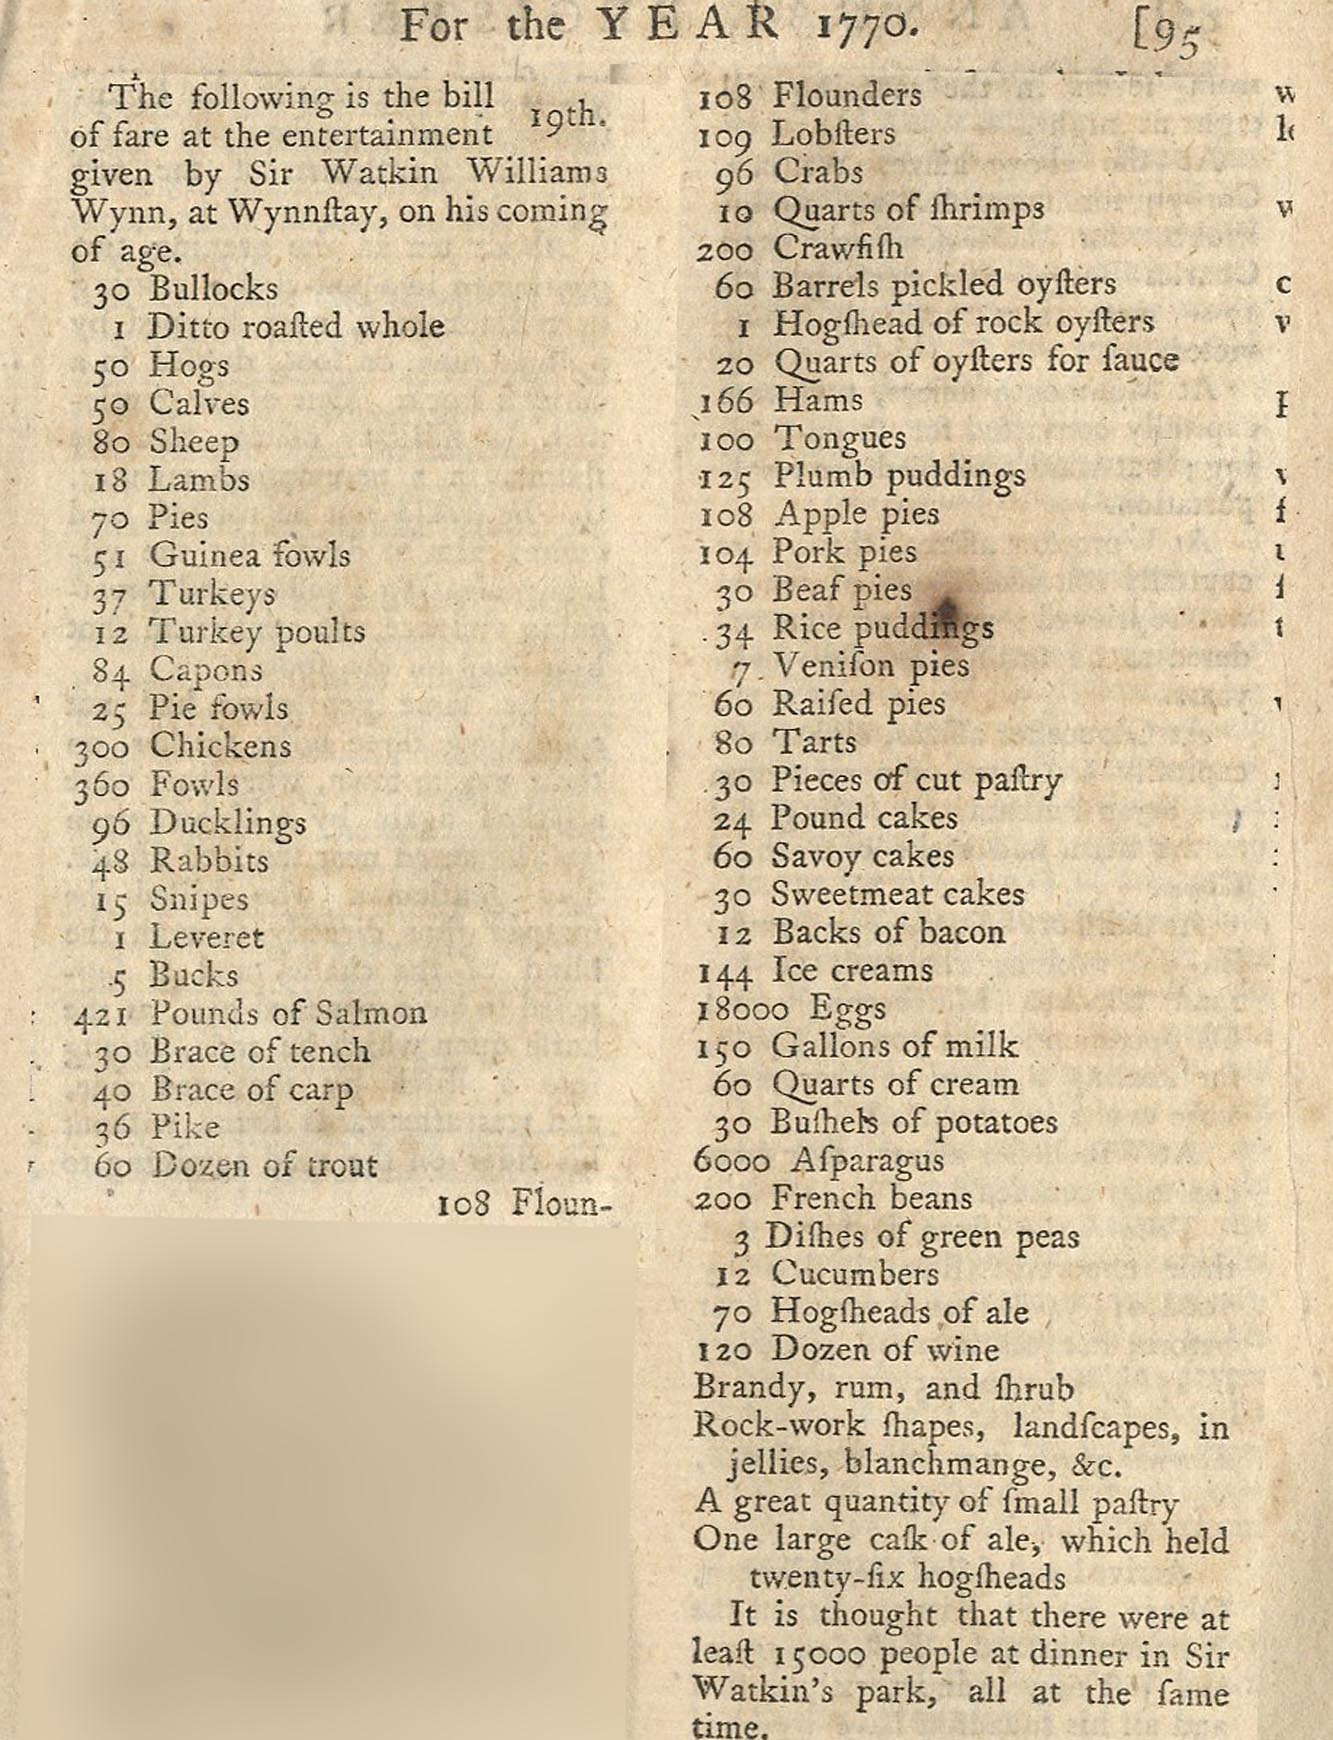 For the YEAR 1770.
[95
The following is the bill
19th.
of fare at the entertainment
given by Sir Watkin Williams
Wynn, at Wynnſtay, on his coming
of age.
30 Bullocks
1 Ditto roaſted whole
50 Hogs
50 Calves
80 Sheep
18 Lambs
70 Pies
51 Guinea fowls
37 Turkeys
12 Turkey poults
84 Capons
25 Pie fowls
300 Chickens
360 Fowls
96 Ducklings
48 Rabbits
15 Snipes
1 Leveret
5 Bucks
421 Pounds of Salmon
30 Brace of tench
40 Brace of carp
36 Pike
60 Dozen of trout
108 Floun-
108 Flounders
109 Lobſters
96 Crabs
10 Quarts of ſhrimps
200 Crawfiſh
60 Barrels pickled oyſters
1 Hogſhead of rock oyſters
20 Quarts of oyſters for ſauce
166 Hams
100 Tongues
125 Plumb puddings
108 Apple pies
104 Pork pies
30 Beaf pies
34 Rice puddings
7 Veniſon pies
60 Raiſed pies
80 Tarts
30 Pieces of cut paſtry
24 Pound cakes
60 Savoy cakes
30 Sweetmeat cakes
12 Backs of bacon
144 Ice creams
18000 Eggs
150 Gallons of milk
60 Quarts of cream
30 Buſhels of potatoes
6000 Aſparagus
200 French beans
3 Diſhes of green peas
12 Cucumbers
70 Hogſheads of ale
120 Dozen of wine
Brandy, rum, and ſhrub
Rock-work ſhapes, landſcapes, in
jellies, blanchmange, &c.
A great quantity of ſmall paſtry
One large caſk of ale, which held
twenty-ſix hogſheads
It is thought that there were at
leaſt 15000 people at dinner in Sir
Watkin's park, all at the ſame
time.